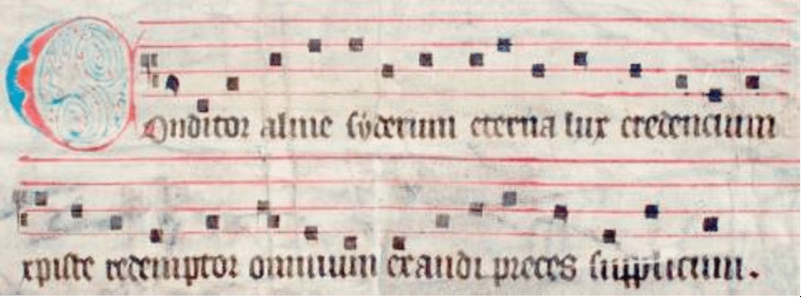 Conditor alme syderum eterna lux credencium
xpiste redemptor omnium exaudi preces supplicum.